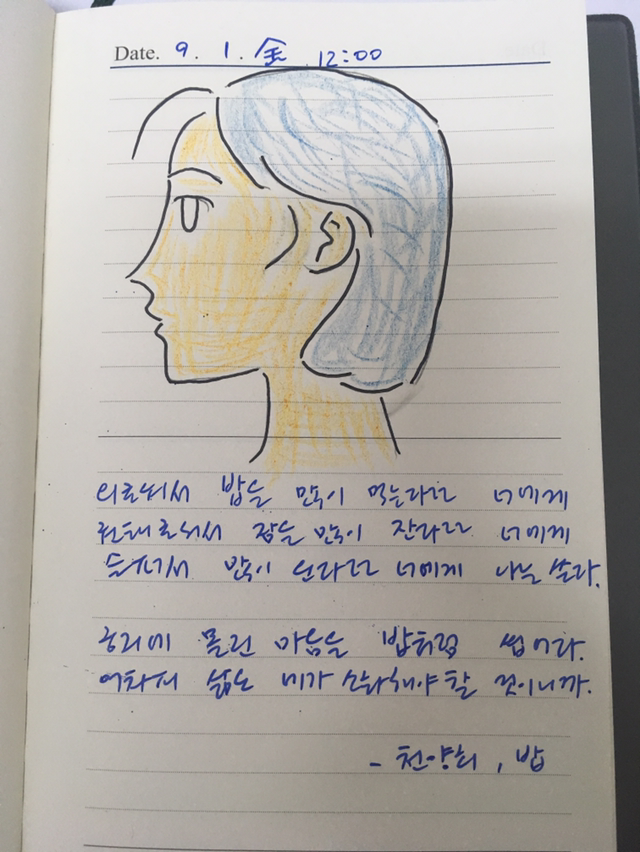 Date. 9. 1. 金 12:00
외로워서 밥을 많이 먹는다던 너에게
권태로워서 잠을 많이 잔다던 너에게
슬퍼서 많이 운다던 너에게 나는 쓴다.
궁지에 몰린 마음을 밥처럼 씹어라.
어차피 삶은 네가 소화해야 할 것이니까.
- 천양희, 밥